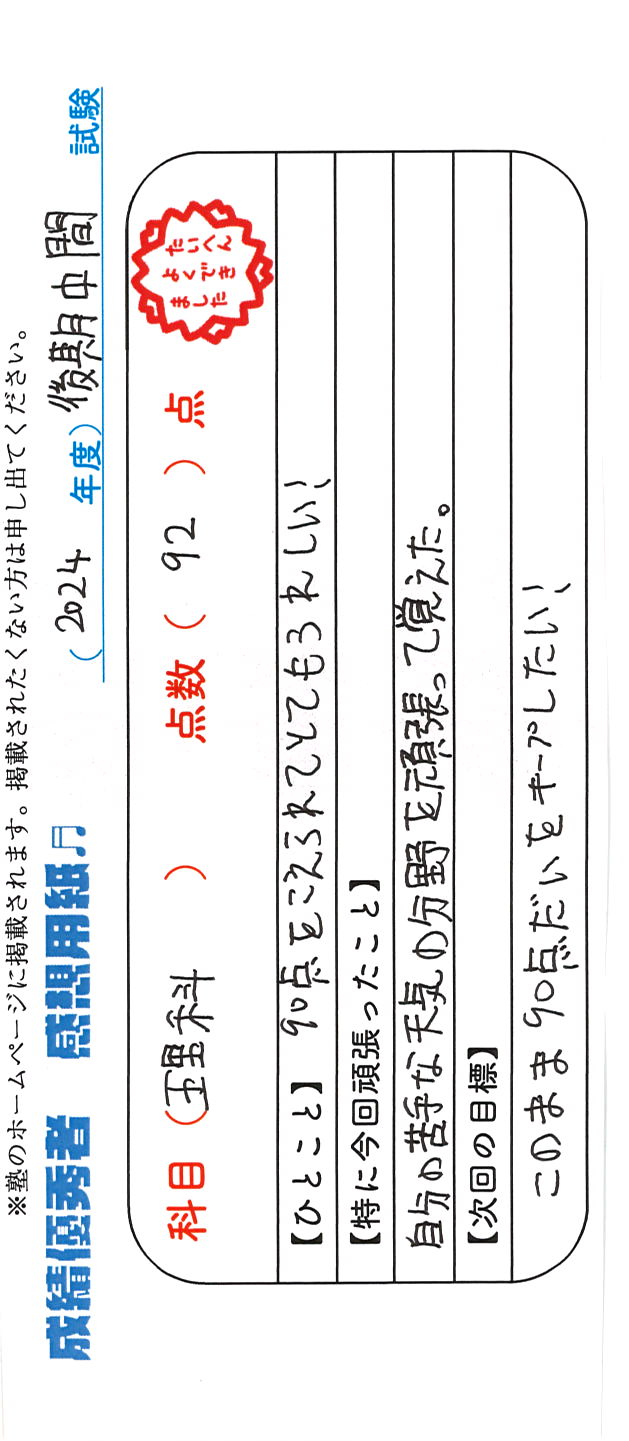 ※塾のホームページに掲載されます。掲載されたくない方は申し出てください。
成績優秀者 感想用紙♫ (2024 年度) 後期中間 試験
科目 (理科) 点数 (92) 点
たいへん
よくでき
ました
【ひとこと】 90点をこえられてとてもうれしい!
【特に今回頑張ったこと】
自分の苦手な天気の分野を頑張って覚えた。
【次回の目標】
このまま90点だいをキープしたい!